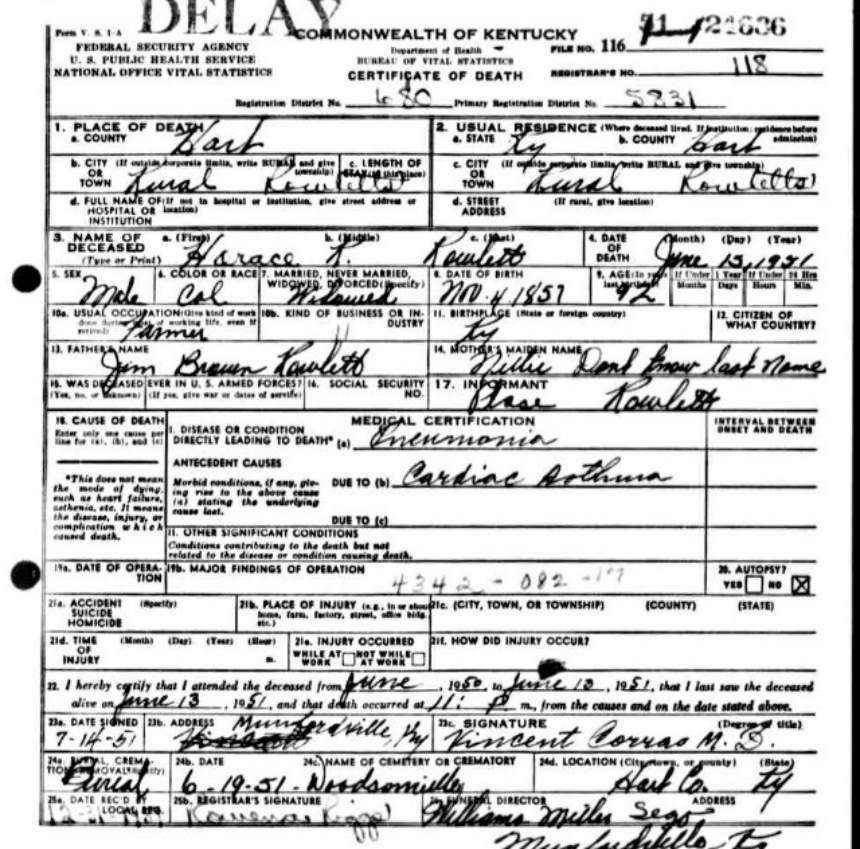 DELAY
Form V. S. 1-A
COMMONWEALTH OF KENTUCKY
FEDERAL SECURITY AGENCY
U. S. PUBLIC HEALTH SERVICE
NATIONAL OFFICE VITAL STATISTICS
Department of Health
BUREAU OF VITAL STATISTICS
CERTIFICATE OF DEATH
FILE NO. 116
REGISTRAR'S NO. 118
Registration District No. 680 Primary Registration District No. 5831
1. PLACE OF DEATH
a. COUNTY Hart
2. USUAL RESIDENCE (Where deceased lived. If institution: residence before admission)
a. STATE Ky b. COUNTY Hart
b. CITY (If outside corporate limits, write RURAL and give township) OR TOWN Rural Rowletts
c. LENGTH OF STAY (in this place)
c. CITY (If outside corporate limits, write RURAL and give township) OR TOWN Rural Rowletts
d. FULL NAME OF (If not in hospital or institution, give street address or location) HOSPITAL OR INSTITUTION
d. STREET ADDRESS (If rural, give location)
3. NAME OF DECEASED (Type or Print) a. (First) b. (Middle) c. (Last)
Horace K. Rowlett
4. DATE OF DEATH (Month) (Day) (Year)
June 13, 1951
5. SEX Male
6. COLOR OR RACE Col
7. MARRIED, NEVER MARRIED, WIDOWED, DIVORCED (Specify) Widowed
8. DATE OF BIRTH Nov. 4 1857
9. AGE (In years last birthday) 92
If Under 1 Year Months Days
If Under 24 Hrs Hours Min.
10a. USUAL OCCUPATION (Give kind of work done during most of working life, even if retired) Farmer
10b. KIND OF BUSINESS OR INDUSTRY
11. BIRTHPLACE (State or foreign country) Ky
12. CITIZEN OF WHAT COUNTRY?
13. FATHER'S NAME
Jim Brown Rowlett
14. MOTHER'S MAIDEN NAME
Dont know last name
15. WAS DECEASED EVER IN U. S. ARMED FORCES? (Yes, no, or unknown) (If yes, give war or dates of service)
16. SOCIAL SECURITY NO.
17. INFORMANT
Rowlett
18. CAUSE OF DEATH
Enter only one cause per line for (a), (b), and (c)
MEDICAL CERTIFICATION
INTERVAL BETWEEN ONSET AND DEATH
I. DISEASE OR CONDITION DIRECTLY LEADING TO DEATH* (a) Pneumonia
*This does not mean the mode of dying, such as heart failure, asthenia, etc. It means the disease, injury, or complication which caused death.
ANTECEDENT CAUSES
Morbid conditions, if any, giving rise to the above cause (a) stating the underlying cause last.
DUE TO (b) Cardiac Asthma
DUE TO (c)
II. OTHER SIGNIFICANT CONDITIONS
Conditions contributing to the death but not related to the disease or condition causing death.
19a. DATE OF OPERATION
19b. MAJOR FINDINGS OF OPERATION
4342 - 082 - 17
20. AUTOPSY? YES NO X
21a. ACCIDENT SUICIDE HOMICIDE (Specify)
21b. PLACE OF INJURY (e.g., in or about home, farm, factory, street, office bldg. etc.)
21c. (CITY, TOWN, OR TOWNSHIP) (COUNTY) (STATE)
21d. TIME OF INJURY (Month) (Day) (Year) (Hour) m.
21e. INJURY OCCURRED WHILE AT WORK NOT WHILE AT WORK
21f. HOW DID INJURY OCCUR?
22. I hereby certify that I attended the deceased from June, 1950, to June 13, 1951, that I last saw the deceased
alive on June 13, 1951, and that death occurred at 11: P m., from the causes and on the date stated above.
23a. DATE SIGNED 7-14-51
23b. ADDRESS Munfordville, Ky
23c. SIGNATURE (Degree or title)
Vincent Corrao M. D.
24a. BURIAL, CREMATION, REMOVAL (Specify) Burial
24b. DATE 6-19-51
24c. NAME OF CEMETERY OR CREMATORY
24d. LOCATION (City, town, or county) (State) Hart Co. Ky
25a. DATE REC'D BY LOCAL REG.
25b. REGISTRAR'S SIGNATURE
FUNERAL DIRECTOR ADDRESS
Williams Miller Sego
Munfordville Ky